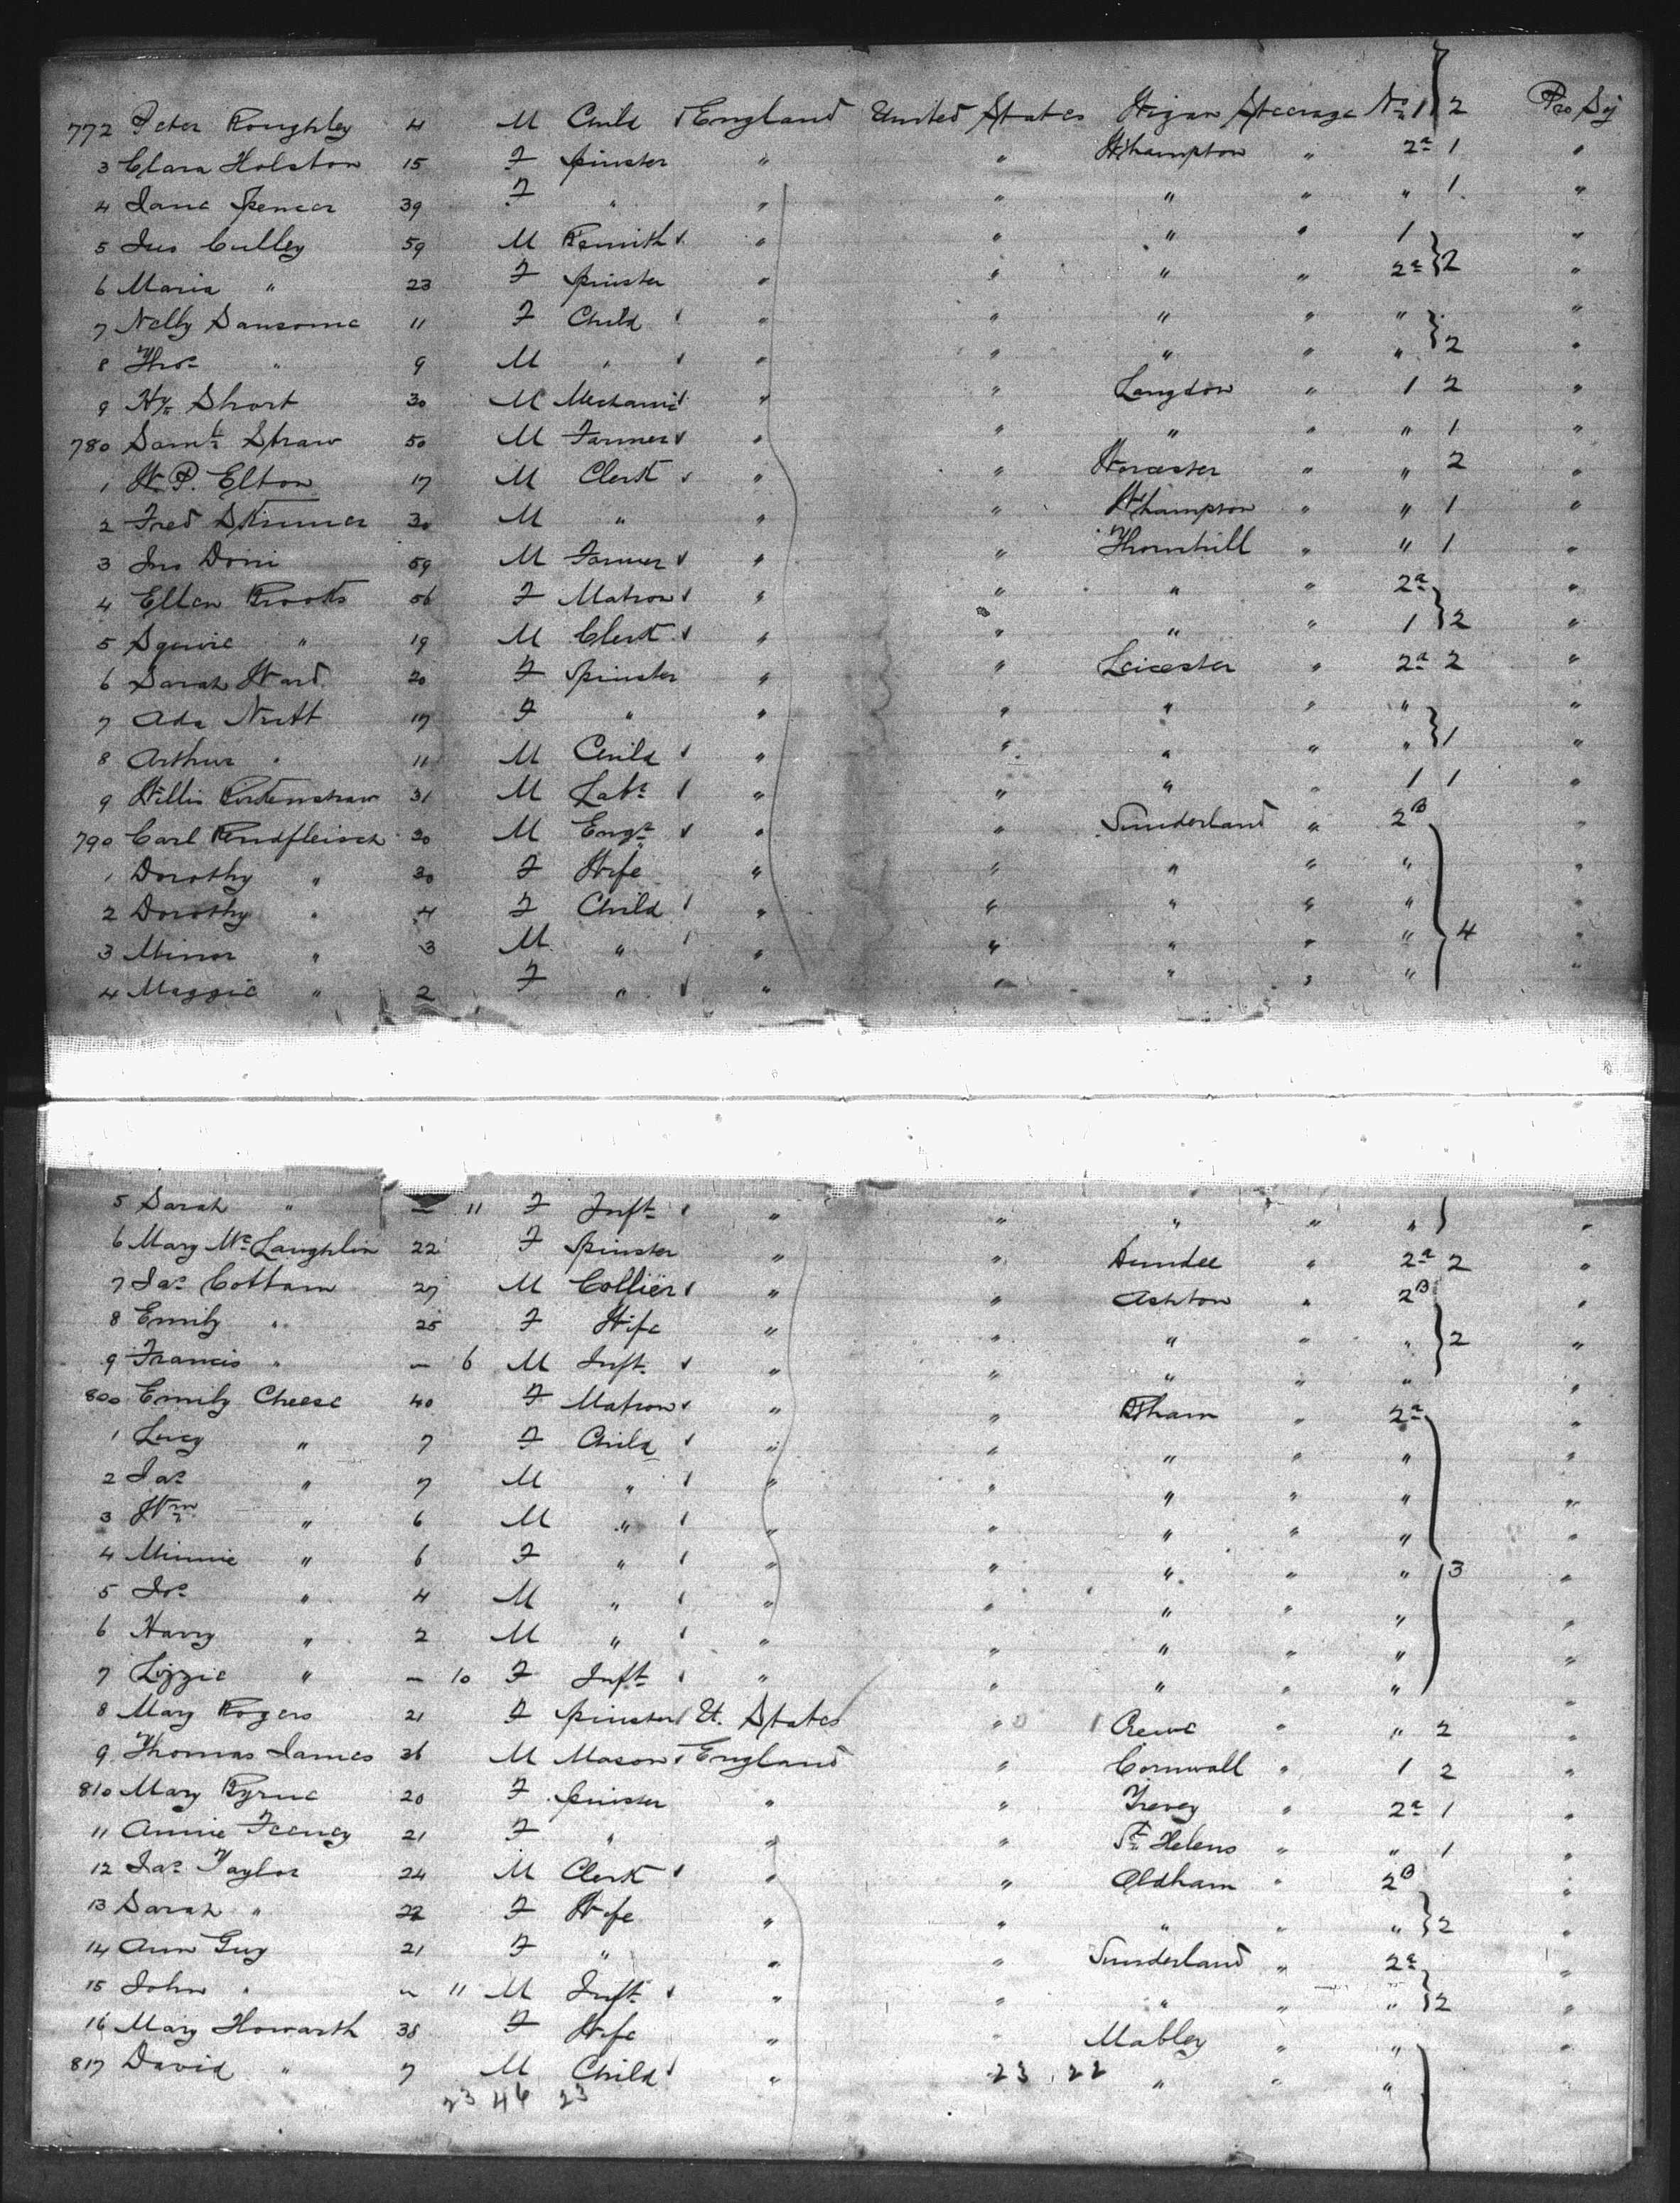 772 Peter Roughley 4 M Child England United States Wigan Steerage No 1 2 Pro Sj
3 Clara Holston 15 F Spinster " " W'hampton " 2a 1 "
4 Jane Spencer 39 F " " " " " " 1 "
5 Jno Culley 59 M Bsmith " " " " 1 "
6 Maria " 23 F Spinster " " " " 2a 2 "
7 Nelly Sansome 11 F Child " " " " " "
8 Thos " 9 M " " " " " " 2 "
9 Hy Short 30 M Mechanic " " Langdon " 1 2 "
780 Saml Straw 50 M Farmer " " " " " 1 "
1 W.P. Elton 17 M Clerk " " Worcester " " 2 "
2 Fred Skinner 30 M " " " W'hampton " " 1 "
3 Jno Doni 59 M Farmer " " Thornhill " " 1 "
4 Ellen Brooks 56 F Matron " " " " 2a "
5 Squire " 19 M Clerk " " " " 1 2 "
6 Sarah Ward 20 F Spinster " " Leicester " 2a 2 "
7 Ada Nutt 17 F " " " " " " "
8 Arthur " 11 M Child " " " " " 1 "
9 Willis 31 M Labr " " " " 1 1 "
790 Carl Rendfleisch 30 M Engr " " Sunderland " 2B "
1 Dorothy " 30 F Wife " " " " " "
2 Dorothy " 4 F Child " " " " " "
3 Minor " 3 M " " " " " " 4 "
4 Maggie " 2 F " " " " " " "
5 Sarah " — 11 F Inft " " " " " "
6 Mary McLaughlin 22 F Spinster " " Dundee " 2a 2 "
7 Jas Cottam 27 M Collier " " Ashton " 2B "
8 Emily " 25 F Wife " " " " " 2 "
9 Francis " — 6 M Inft " " " " " "
800 Emily Cheese 40 F Matron " " B'ham " 2a "
1 Lucy " 7 F Child " " " " " "
2 Jas " 7 M " " " " " " "
3 Wm " 6 M " " " " " " "
4 Minnie " 6 F " " " " " " 3 "
5 Jos " 4 M " " " " " " "
6 Harry " 2 M " " " " " " "
7 Lizzie " — 10 F Inft " " " " " "
8 Mary Rogers 21 F Spinster U. States " Crewe " " 2 "
9 Thomas James 36 M Mason England " Cornwall " 1 2 "
810 Mary Byrne 20 F Spinster " " " 2a 1 "
11 Annie Feeney 21 F " " " St Helens " " 1 "
12 Jas Taylor 24 M Clerk " " Oldham " 2B "
13 Sarah " 22 F Wife " " " " " 2 "
14 Ann Guy 21 F " " " Sunderland " 2a "
15 John " — 11 M Inft " " " " " 2 "
16 Mary Howarth 38 F Wife " " Mabley " " "
817 David " 7 M Child " 23 22 " " "
23 46 23